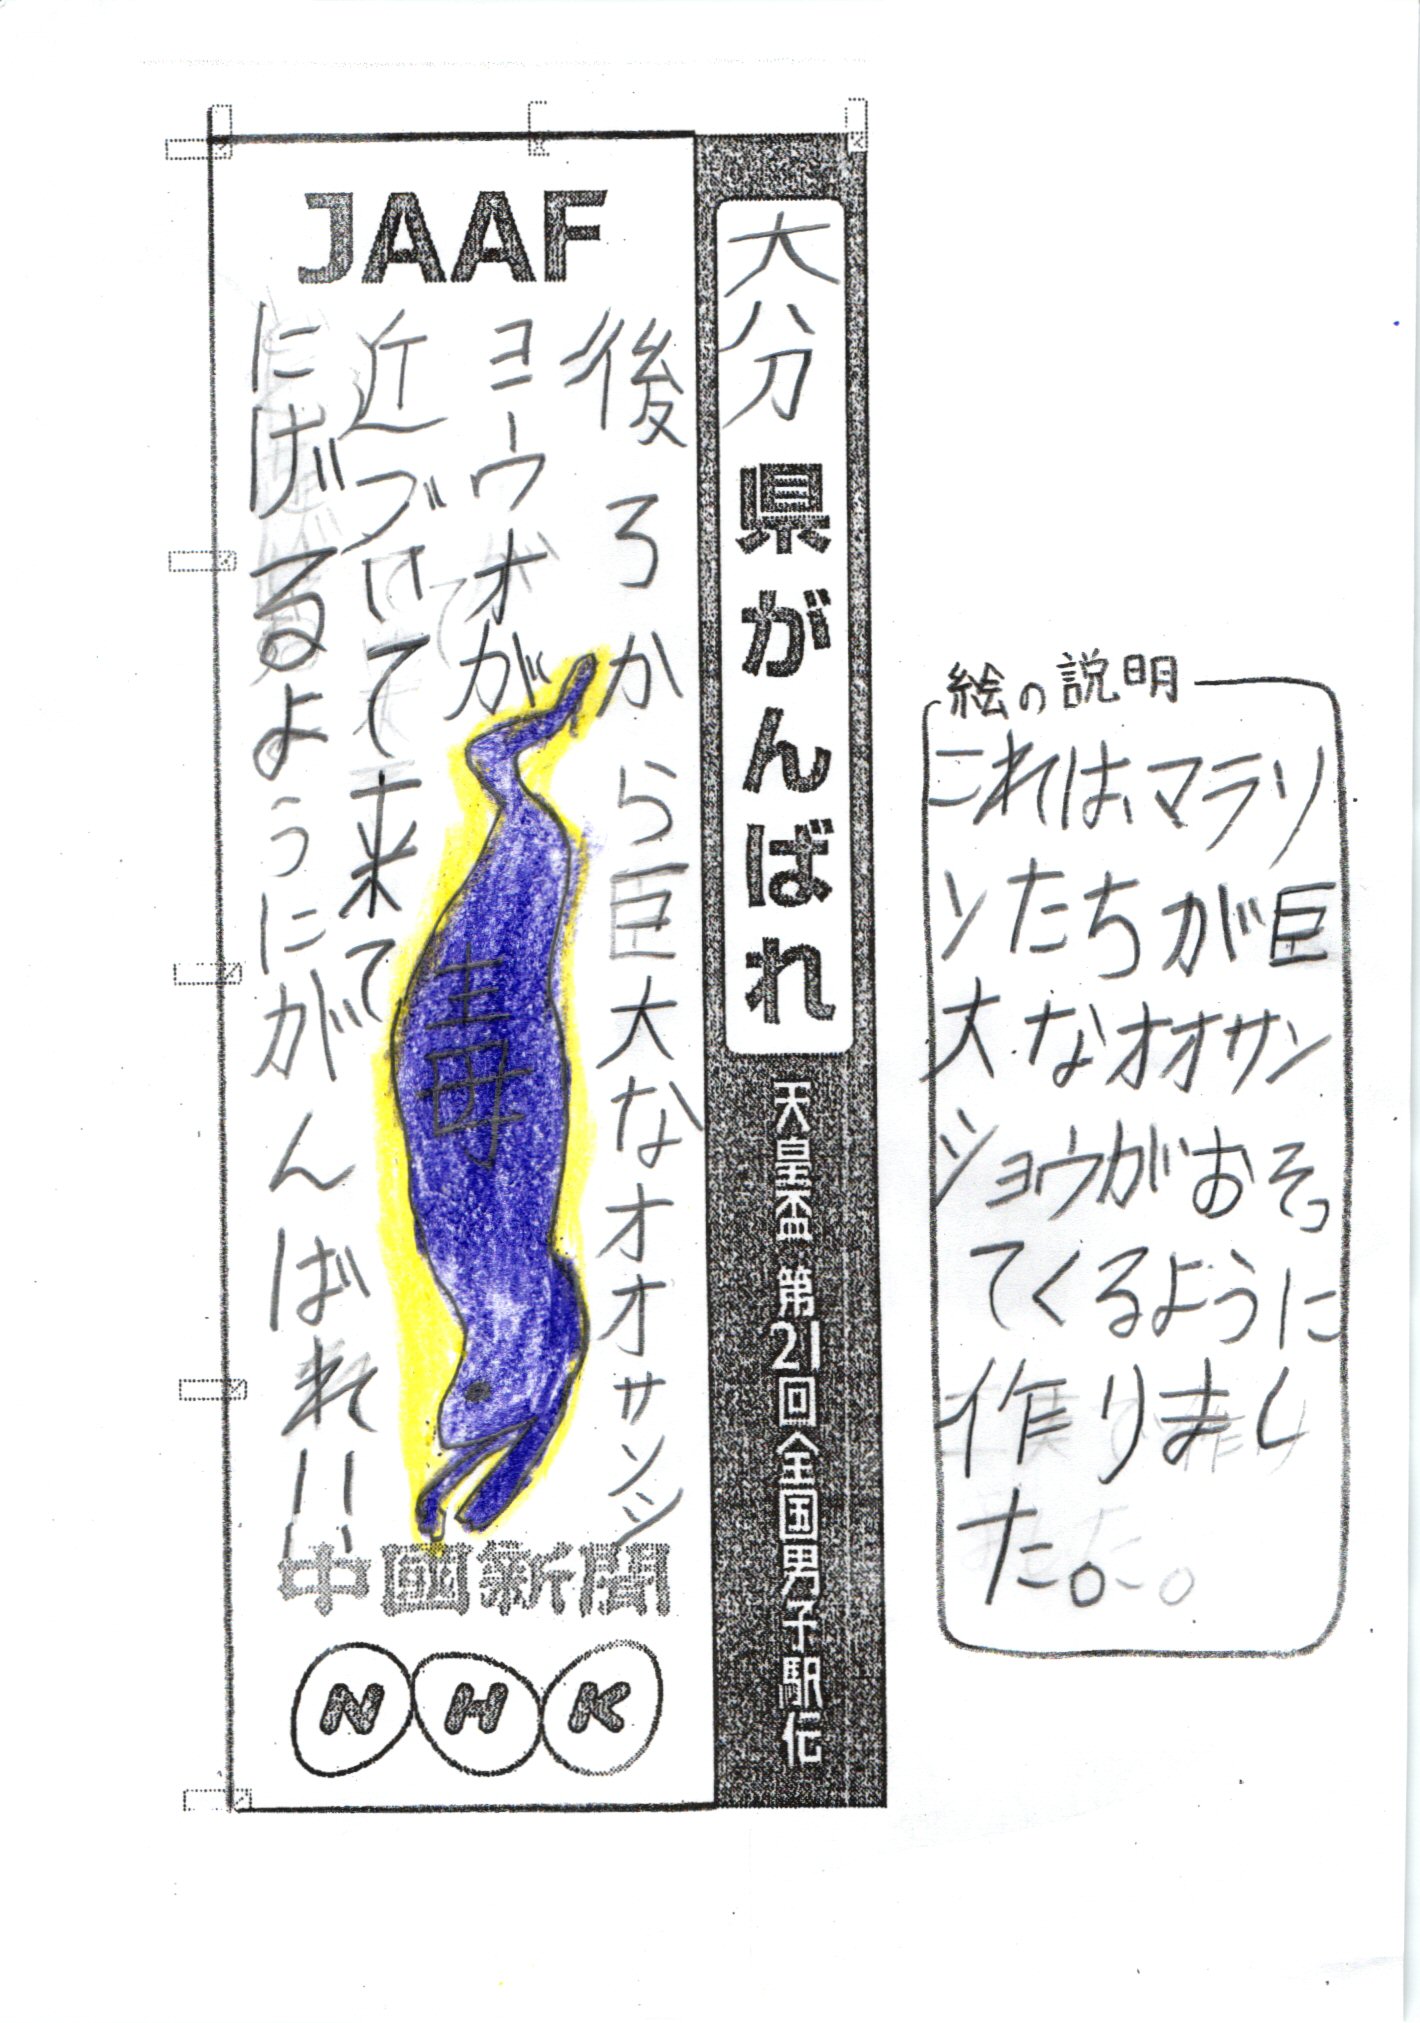 JAAF
大分県がんばれ
天皇盃 第21回全国男子駅伝
後ろから巨大なオオサンシ
ョーウオが
近づいて来て
にげるようにがんばれ!!
毒
中國新聞
NHK
絵の説明
これは、マラソ
ンたちが巨
大なオオサン
ショウがおそっ
てくるように
作りまし
た。